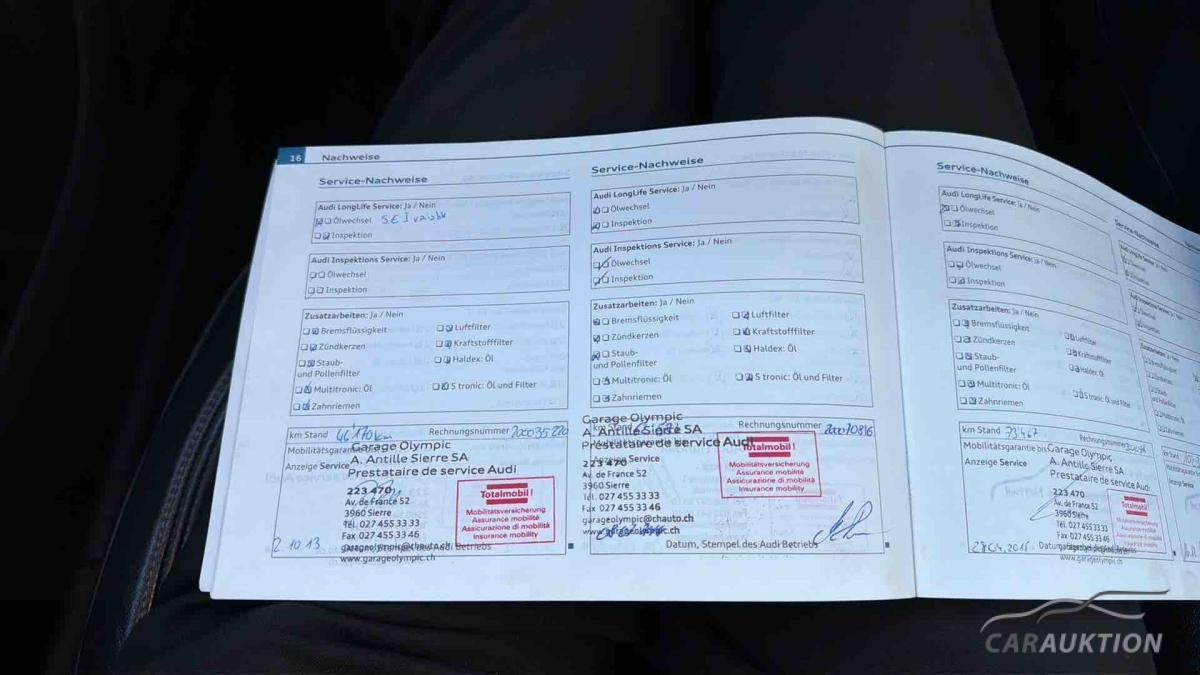 16 Nachweise
Service-Nachweise
Audi LongLife Service: Ja / Nein
Ölwechsel SE I
Inspektion
Audi Inspektions Service: Ja / Nein
Ölwechsel
Inspektion
Zusatzarbeiten: Ja / Nein
Bremsflüssigkeit Luftfilter
Zündkerzen Kraftstofffilter
Staub- Haldex: Öl
und Pollenfilter
Multitronic: Öl S tronic: Öl und Filter
Zahnriemen
km Stand 46'170 km Rechnungsnummer 200035220
Mobilitätsgarantie bis
Garage Olympic
A. Antille Sierre SA
Anzeige Service
Prestataire de service Audi
223 470
Av. de France 52
3960 Sierre
Tél. 027 455 33 33
Fax 027 455 33 46
garageolympic@chauto.ch
www.garageolympic.ch
Totalmobil!
Mobilitätsversicherung
Assurance mobilité
Assicurazione di mobilità
Insurance mobility
2.10.13
Service-Nachweise
Audi LongLife Service: Ja / Nein
Ölwechsel
Inspektion
Audi Inspektions Service: Ja / Nein
Ölwechsel
Inspektion
Zusatzarbeiten: Ja / Nein
Bremsflüssigkeit Luftfilter
Zündkerzen Kraftstofffilter
Staub- Haldex: Öl
und Pollenfilter
Multitronic: Öl S tronic: Öl und Filter
Zahnriemen
Garage Olympic
km Stand Rechnungsnummer 20070816
A. Antille Sierre SA
Prestataire de service Audi
Anzeige Service
223 470
Av. de France 52
3960 Sierre
Tél. 027 455 33 33
Fax 027 455 33 46
garageolympic@chauto.ch
Totalmobil!
Mobilitätsversicherung
Assurance mobilité
Assicurazione di mobilità
Insurance mobility
Datum, Stempel des Audi Betriebs
Service-Nachweise
Audi LongLife Service: Ja / Nein
Ölwechsel
Inspektion
Audi Inspektions Service: Ja / Nein
Ölwechsel
Inspektion
Zusatzarbeiten: Ja / Nein
Bremsflüssigkeit Luftfilter
Zündkerzen Kraftstofffilter
Staub- Haldex: Öl
und Pollenfilter
Multitronic: Öl S tronic: Öl und Filter
Zahnriemen
km Stand 73467 Rechnungsnummer
Mobilitätsgarantie bis
Garage Olympic
A. Antille Sierre SA
Anzeige Service
Prestataire de service Audi
223 470
Av. de France 52
3960 Sierre
Tél. 027 455 33 33
Fax 027 455 33 46
www.garageolympic.ch
Totalmobil!
28.04.2015
Service-Nachweise
CARAUKTION